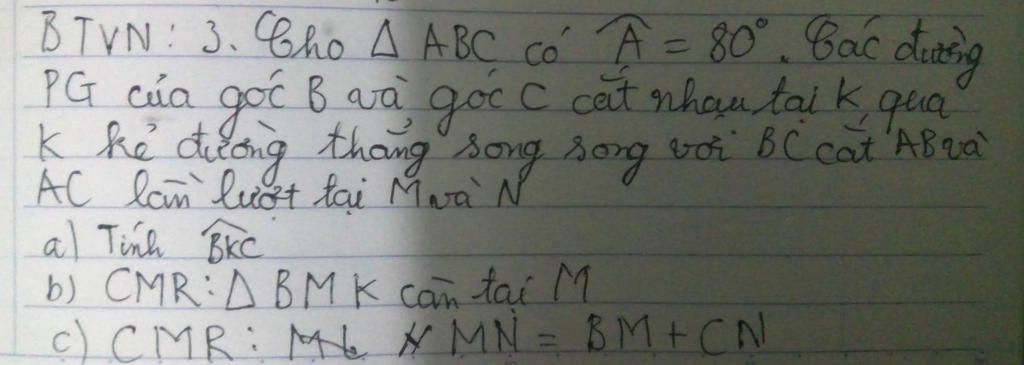 BTVN: 3. Cho Δ ABC có Â = 80°. Các đường
PG của góc B và góc C cắt nhau tại K qua
K kẻ đường thẳng song song với BC cắt AB và
AC lần lượt tại M và N
a) Tính BKC
b) CMR: Δ BMK cân tại M
c) CMR: MN = BM + CN